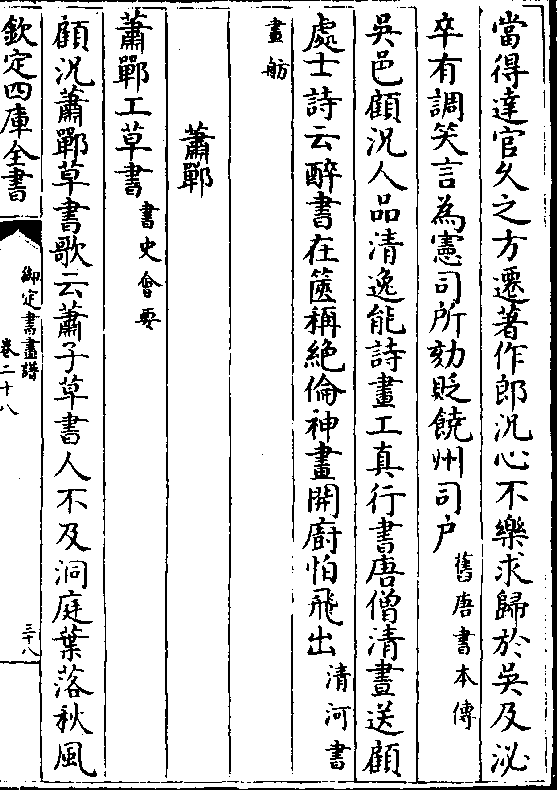 當得達官久之方遷著作郎況心不樂求歸於吳及泌
卒有調笑言為憲司所劾貶饒州司户舊唐書本傳
吳邑顧況人品清逸能詩畫工真行書唐僧清晝送顧
處士詩云醉書在篋稱絕倫神畫開廚怕飛出清河書
畫舫
蕭鄲
蕭鄲工草書書史會要
顧況蕭鄲草書歌云蕭子草書人不及洞庭葉落秋風
欽定四庫全書
御定書畫譜
卷二十八
三十八